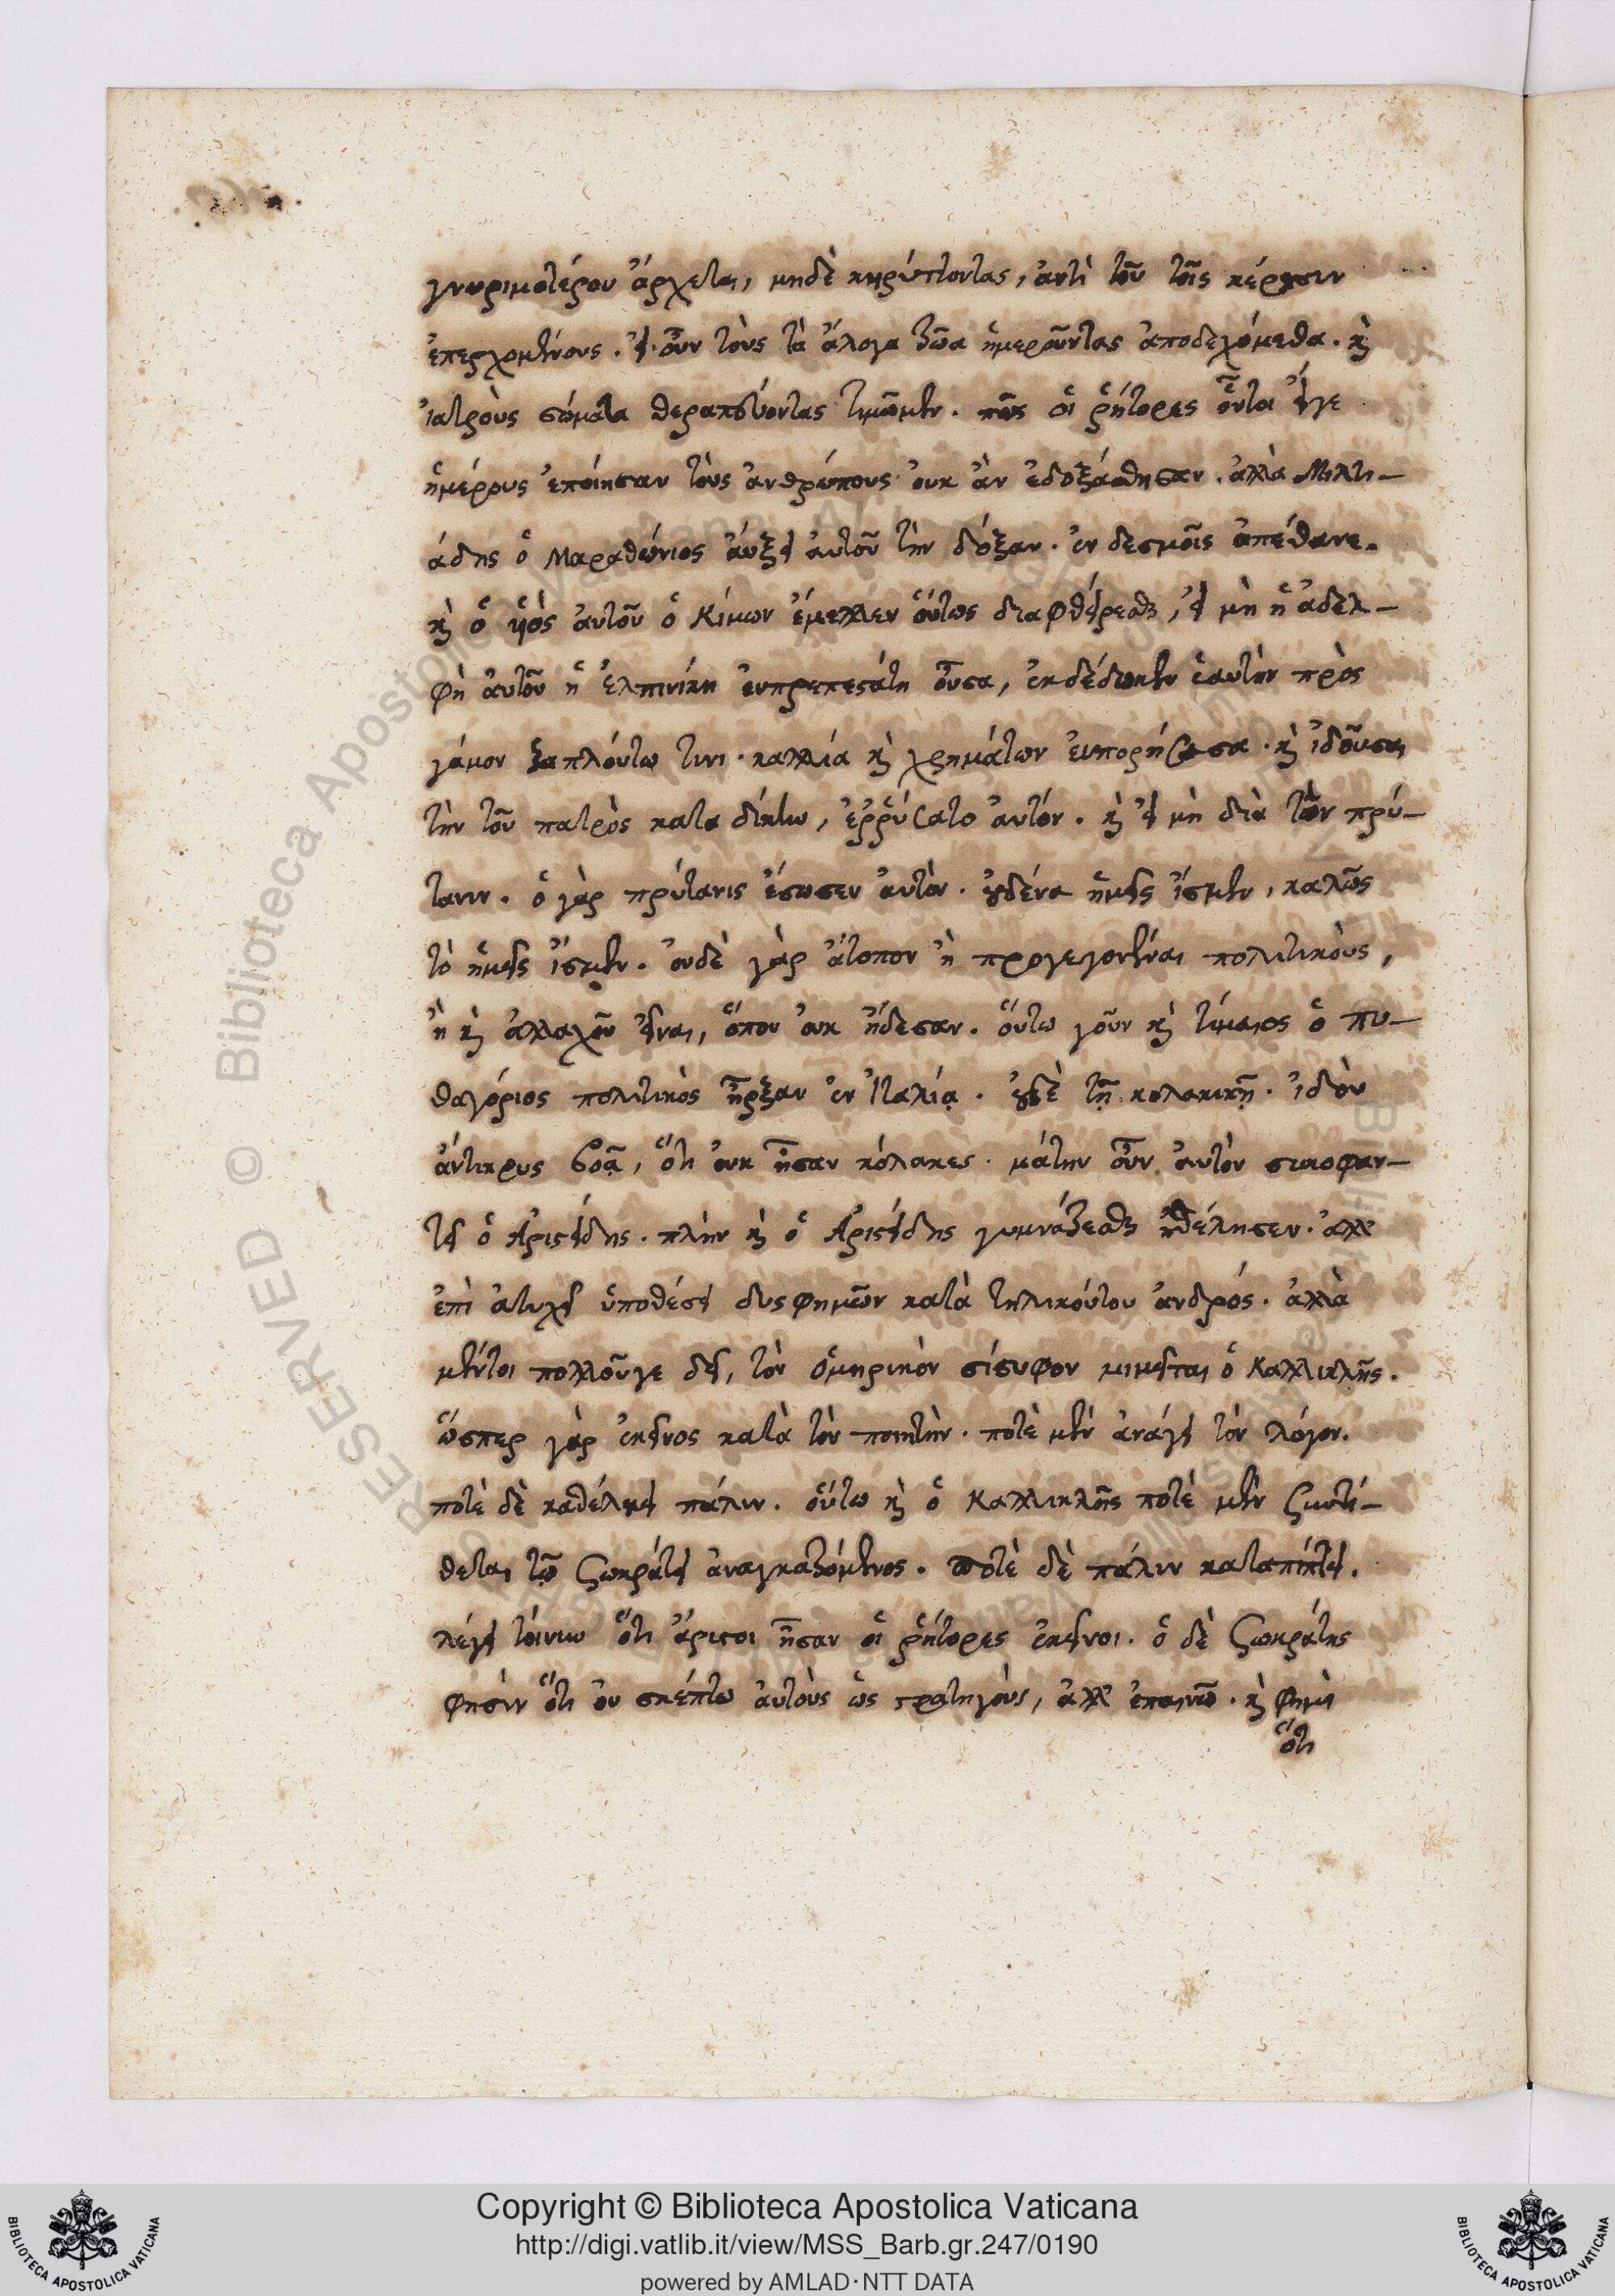 γνωριμοτέρου ἄρχεται, μηδὲ κηρύττοντας, ἀντὶ τοῦ τοῖς κέρασιν
ἐπερχομένους. εἰ οὖν τοὺς τὰ ἄλογα ζῶα ἡμεροῦντας ἀποδεχόμεθα. καὶ
ἰατροὺς σώματα θεραπεύοντας τιμῶμεν. πῶς οἱ ῥήτορες οὗτοι εἴγε
ἡμέρους ἐποίησαν τοὺς ἀνθρώπους οὐκ ἂν ἐδοξάσθησαν. ἀλλὰ Μιλτι-
άδης ὁ Μαραθώνιος αὔξει αὐτοῦ τὴν δόξαν. ἐν δεσμοῖς ἀπέθανε.
καὶ ὁ υἱὸς αὐτοῦ ὁ Κίμων ἔμελλεν οὕτως διαφθείρεσθαι, εἰ μὴ ἡ ἀδελ-
φὴ αὐτοῦ ἡ Ἐλπινίκη εὐπρεπεστάτη οὖσα, ἐκδέδωκεν ἑαυτὴν πρὸς
γάμον ζαπλούτω τινι. καλλία καὶ χρημάτων εὐπορήσασα. καὶ ἰδοῦσα
τὴν τοῦ πατρὸς καταδίκην, ἐῤῥύσατο αὐτόν. καὶ εἰ μὴ διὰ τὸν πρύ-
τανιν. ὁ γὰρ πρύτανις ἔσωσεν αὐτόν. οὐδένα ἡμεῖς ἴσμεν, καλῶς
τὸ ἡμεῖς ἴσμεν. οὐδὲ γὰρ ἄτοπον ἢ προγεγονέναι πολιτικοὺς,
ἢ καὶ ἀλλαχοῦ εἶναι, ὅπου οὐκ ᾔδεσαν. οὕτω γοῦν καὶ τίμαιος ὁ πυ-
θαγόριος πολιτικὸς ἦρξαν ἐν Ἰταλίᾳ. οὐδὲ τῇ κολακικῇ. ἰδοὺ
ἄντικρυς βοᾷ, ὅτι οὐκ ἦσαν κόλακες. μάτην οὖν αὐτὸν συκοφαν-
τεῖ ὁ Ἀριστείδης. πλὴν καὶ ὁ Ἀριστείδης γυμνάζεσθαι ἠθέλησεν. ἀλλ'
ἐπὶ ἀτυχεῖ ὑποθέσει δυσφημῶν κατὰ τηλικούτου ἀνδρός. ἀλλὰ
μέντοι πολλοῦγε δεῖ, τὸν ὁμηρικὸν σίσυφον μιμεῖται ὁ Καλλικλῆς.
ὥσπερ γὰρ ἐκεῖνος κατὰ τὸν ποιητὴν. ποτὲ μὲν ἀνάγει τὸν λόγον.
ποτὲ δὲ καθέλκει πάλιν. οὕτω καὶ ὁ Καλλικλῆς ποτὲ μὲν συντί-
θεται τῷ Σωκράτει ἀναγκαζόμενος. ποτὲ δὲ πάλιν καταπίπτει.
λέγει τοίνυν ὅτι ἄριστοι ἦσαν οἱ ῥήτορες ἐκεῖνοι. ὁ δὲ Σωκράτης
φησὶν ὅτι οὐ σκέπτω αὐτοὺς ὡς στρατηγοὺς, ἀλλ' ἐπαινῶ. καὶ φημὶ
ὅτι
Copyright © Biblioteca Apostolica Vaticana
http://digi.vatlib.it/view/MSS_Barb.gr.247/0190
powered by AMLAD·NTT DATA